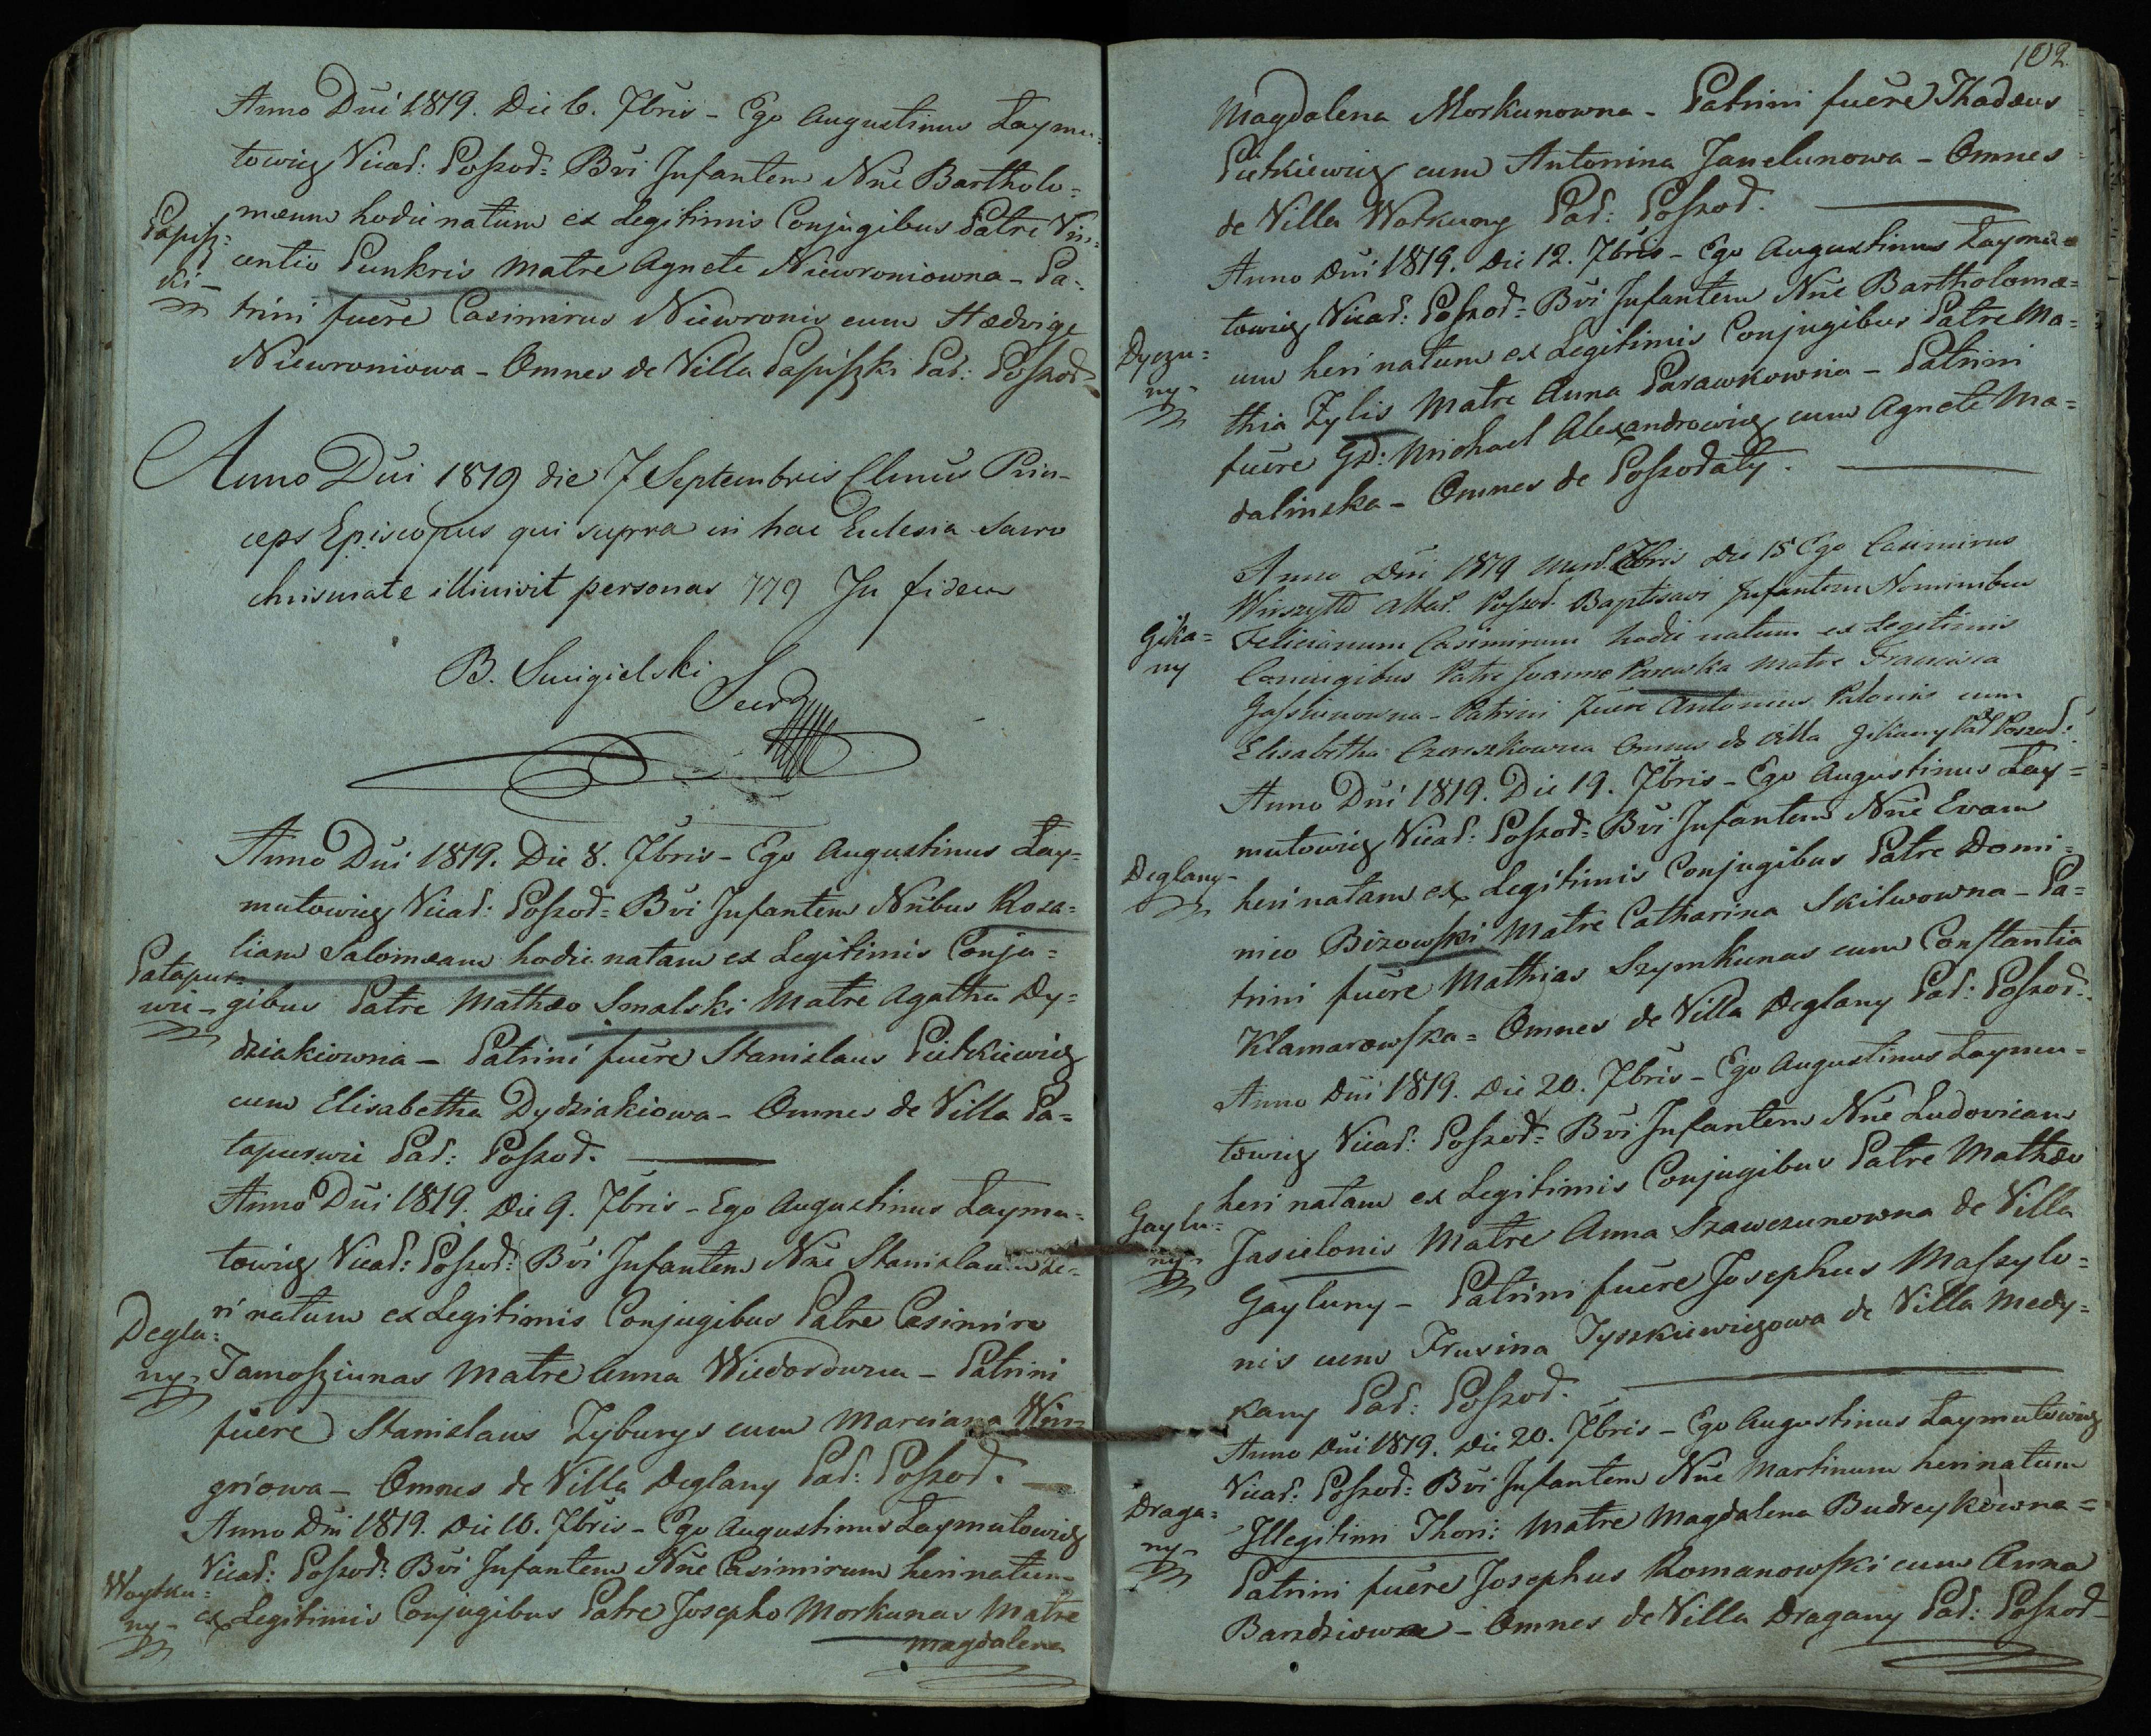 Anno Dni 1819. Die 6. 7bris - Ego Augustinus Laymu=
towicz Vicar: Poszod= Bvi Infantem Nne Bartholo=
mæum hodie natum ex Legitimis Conjugibus Patre Vin=
Papisz=
ki -
centio Punkris Matre Agnete Niewroniowna - Pa=
trini fuere Casimirus Niewronis cum Hædvige
Niewroniowa - Omnes de Villa Papiszki Par: Poszod=
Anno Dni 1819 die 7 Septembris Clsmus Prin-
ceps Episcopus qui supra in hac Eclesia sacro
chrismate illinivit personas 779 In fidem
B. Smigielski
Anno Dni 1819. Die 8. 7bris - Ego Augustinus Lay=
mutowicz Vicar: Poszod= Bvi Infantem Nnibus Rosa=
liam Salomæam hodie natam ex Legitimis Conju=
Patapur=
wie -
gibus Patre Mathæo Smalski Matre Agatha Dy=
dziakiowna - Patrini fuere Stanislaus Pietkiewicz
cum Elisabetha Dydziakiowa - Omnes de Villa Pa=
tapurwie Par: Poszod.
Anno Dni 1819. Die 9. 7bris - Ego Augustinus Laymu=
towicz Vicar: Poszod: Bvi Infantem Nne Stanislaum he=
ri natum ex Legitimis Conjugibus Patre Casimiro
Degla=
ny -
Jamosziunas Matre Anna Wiedorowna - Patrini
fuere Stanislaus Zyburys cum Marciana Win=
griowa - Omnes de Villa Deglany Par: Poszod.
Anno Dni 1819. Die 10. 7bris - Ego Augustinus Laymutowicz
Vicar: Poszod: Bvi Infantem Nne Casimirum heri natum
Woytku=
ny -
ex Legitimis Conjugibus Patre Josepho Morkunas Matre
Magdalena
102.
Magdalena Morkunowna - Patrini fuere Thadæus
Pietkiewicz cum Antonina Janelunowa - Omnes
de Villa Wotkuny Par: Poszod.
Anno Dni 1819. Die 12. 7bris - Ego Augustinus Laymu=
towicz Vicar: Poszod= Bvi Infantem Nne Bartholomæ=
Dyczu=
ny -
um heri natum ex Legitimis Conjugibus Patre Ma=
thia Zylis Matre Anna Parawkowna - Patrini
fuere Gd: Michael Alexandrowicz cum Agnete Ma=
dalinska - Omnes de Poszodaty.
Anno Dni 1819 Mens. 7bris Die 15 Ego Casimirus
Wirszyłło Altar. Poszod. Baptisavi Infantem Nominibus
Gika=
ny
Felicianum Casimirum hodie natum ex Legitimis
Coniugibus Patre Joanne Parewska Matre Francisca
Gassiunowna - Patrini fuere Antonius Patonis cum
Elisabetha Czeraszkowna Omnes de villa Gikany Par Poszod:
Anno Dni 1819. Die 19. 7bris - Ego Augustinus Lay=
mutowicz Vicar: Poszod= Bvi Infantem Nne Evam
Deglany -
heri natam ex Legitimis Conjugibus Patre Domi=
nico Bizowski Matre Catharina Skilwowna - Pa=
trini fuere Mathias Szymkunas cum Constantia
Klamarowska = Omnes de Villa Deglany Par: Poszod.
Anno Dni 1819. Die 20. 7bris - Ego Augustinus Laymu=
towicz Vicar: Poszod= Bvi Infantem Nne Ludovicam
heri natam ex Legitimis Conjugibus Patre Mathæo
Gaylu=
ny -
Jasielonis Matre Anna Szawczunowna de Villa
Gayluny - Patrini fuere Josephus Maszylo=
nis cum Frusina Tyszkiewiczowa de Villa Medy=
kany Par: Poszod.
Anno Dni 1819. Die 20. 7bris - Ego Augustinus Laymutowicz
Vicar: Poszod: Bvi Infantem Nne Martinum heri natum
Draga=
ny -
Illegitimi Thori: Matre Magdalena Budreykowna =
Patrini fuere Josephus Romanowski cum Anna
Barzdziowna - Omnes de Villa Dragany Par: Poszod-